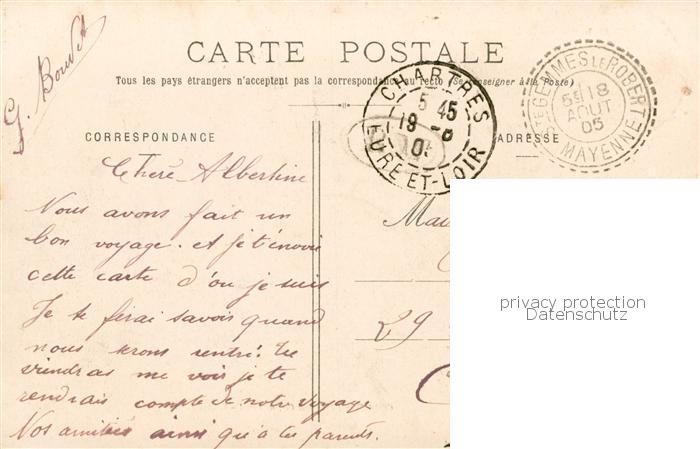 G. Bouvet
CARTE POSTALE
Tous les pays étrangers n'acceptent pas la correspondance au recto (Se renseigner à la Poste)
CORRESPONDANCE
ADRESSE
CHARTRES
5 45
19 -8
05
EURE-ET-LOIR
STE GEMMES LE ROBERT
5E 18
AOUT
05
MAYENNE
Chère Albertine
Nous avons fait un
bon voyage. et je t'envoie
cette carte d'ou je suis
Je te ferai savoir quand
nous serons rentré. tu
viendras me voir je te
rendrais compte de notre voyage
Nos amitiés ainsi qu'a tes parents.
29
privacy protection
Datenschutz